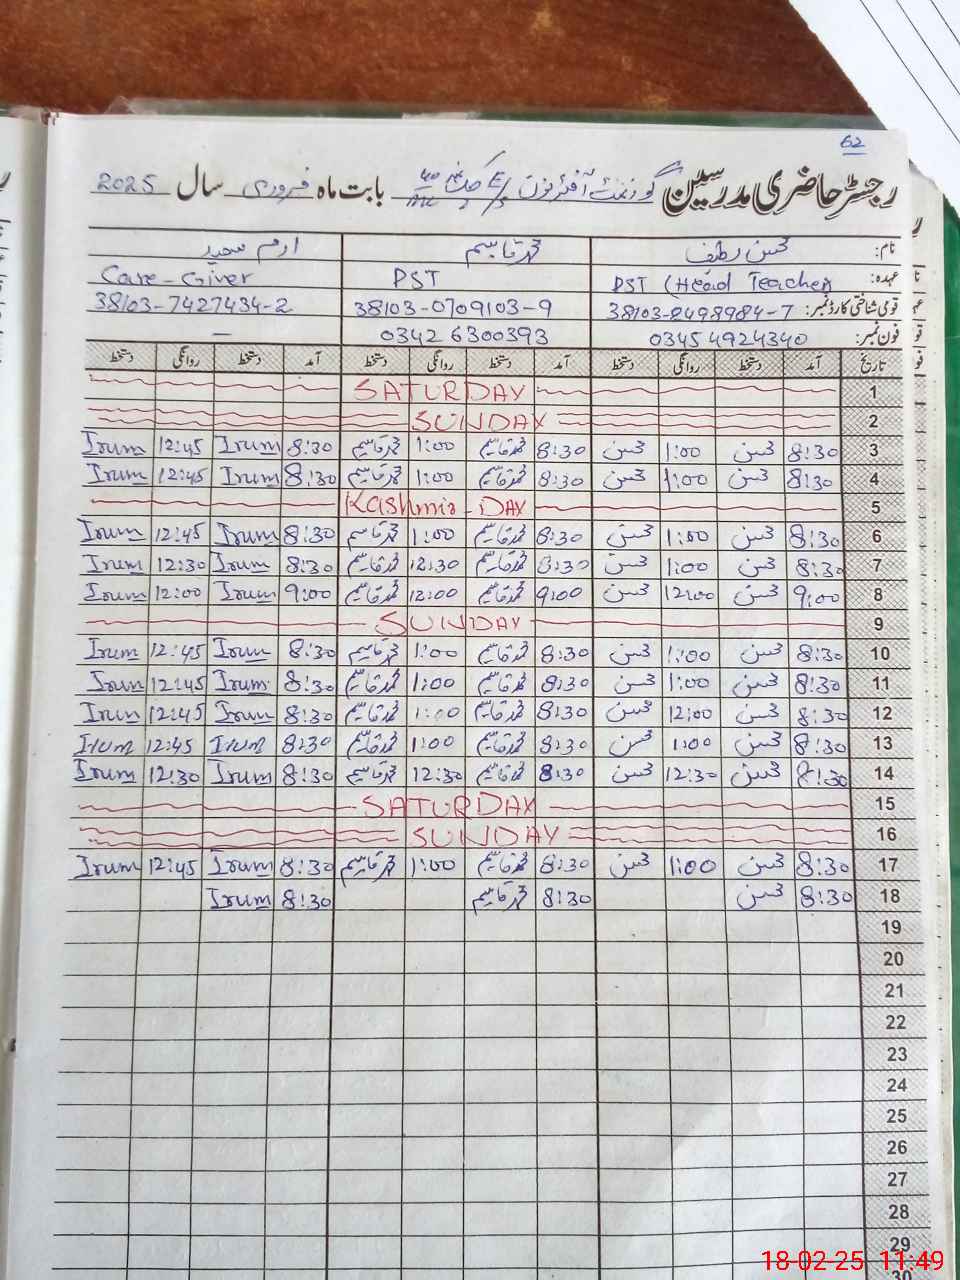 62
رجسٹر حاضری مدرسین گورنمنٹ آفٹر نون بابت ماہ فروری سال 2025
نام: محسن لطیف محمد قاسم ارم سعید
عہدہ: PST (Head Teacher) PST Care-Giver
قومی شناختی کارڈ نمبر: 38103-8498984-7 38103-0709103-9 38103-7427434-2
فون نمبر: 03454924340 03426300393 —
تاریخ آمد دستخط روانگی دستخط آمد دستخط روانگی دستخط آمد دستخط روانگی دستخط
1 SATURDAY
2 SUNDAY
3 8:30 محسن 1:00 محسن 8:30 محمد قاسم 1:00 محمد قاسم 8:30 Irum 12:45 Irum
4 8:30 محسن 1:00 محسن 8:30 محمد قاسم 1:00 محمد قاسم 8:30 Irum 12:45 Irum
5 Kashmir-DAY
6 8:30 محسن 1:00 محسن 8:30 محمد قاسم 1:00 محمد قاسم 8:30 Irum 12:45 Irum
7 8:30 محسن 1:00 محسن 8:30 محمد قاسم 12:30 محمد قاسم 8:30 Irum 12:30 Irum
8 9:00 محسن 12:00 محسن 9:00 محمد قاسم 12:00 محمد قاسم 9:00 Irum 12:00 Irum
9 SUNDAY
10 8:30 محسن 1:00 محسن 8:30 محمد قاسم 1:00 محمد قاسم 8:30 Irum 12:45 Irum
11 8:30 محسن 1:00 محسن 8:30 محمد قاسم 1:00 محمد قاسم 8:30 Irum 12:45 Irum
12 8:30 محسن 12:00 محسن 8:30 محمد قاسم 1:00 محمد قاسم 8:30 Irum 12:45 Irum
13 8:30 محسن 1:00 محسن 8:30 محمد قاسم 1:00 محمد قاسم 8:30 Irum 12:45 Irum
14 8:30 محسن 12:30 محسن 8:30 محمد قاسم 12:30 محمد قاسم 8:30 Irum 12:30 Irum
15 SATURDAY
16 SUNDAY
17 8:30 محسن 1:00 محسن 8:30 محمد قاسم 1:00 محمد قاسم 8:30 Irum 12:45 Irum
18 8:30 محسن 8:30 محمد قاسم 8:30 Irum
19
20
21
22
23
24
25
26
27
28
29
30
18-02-25 11:49